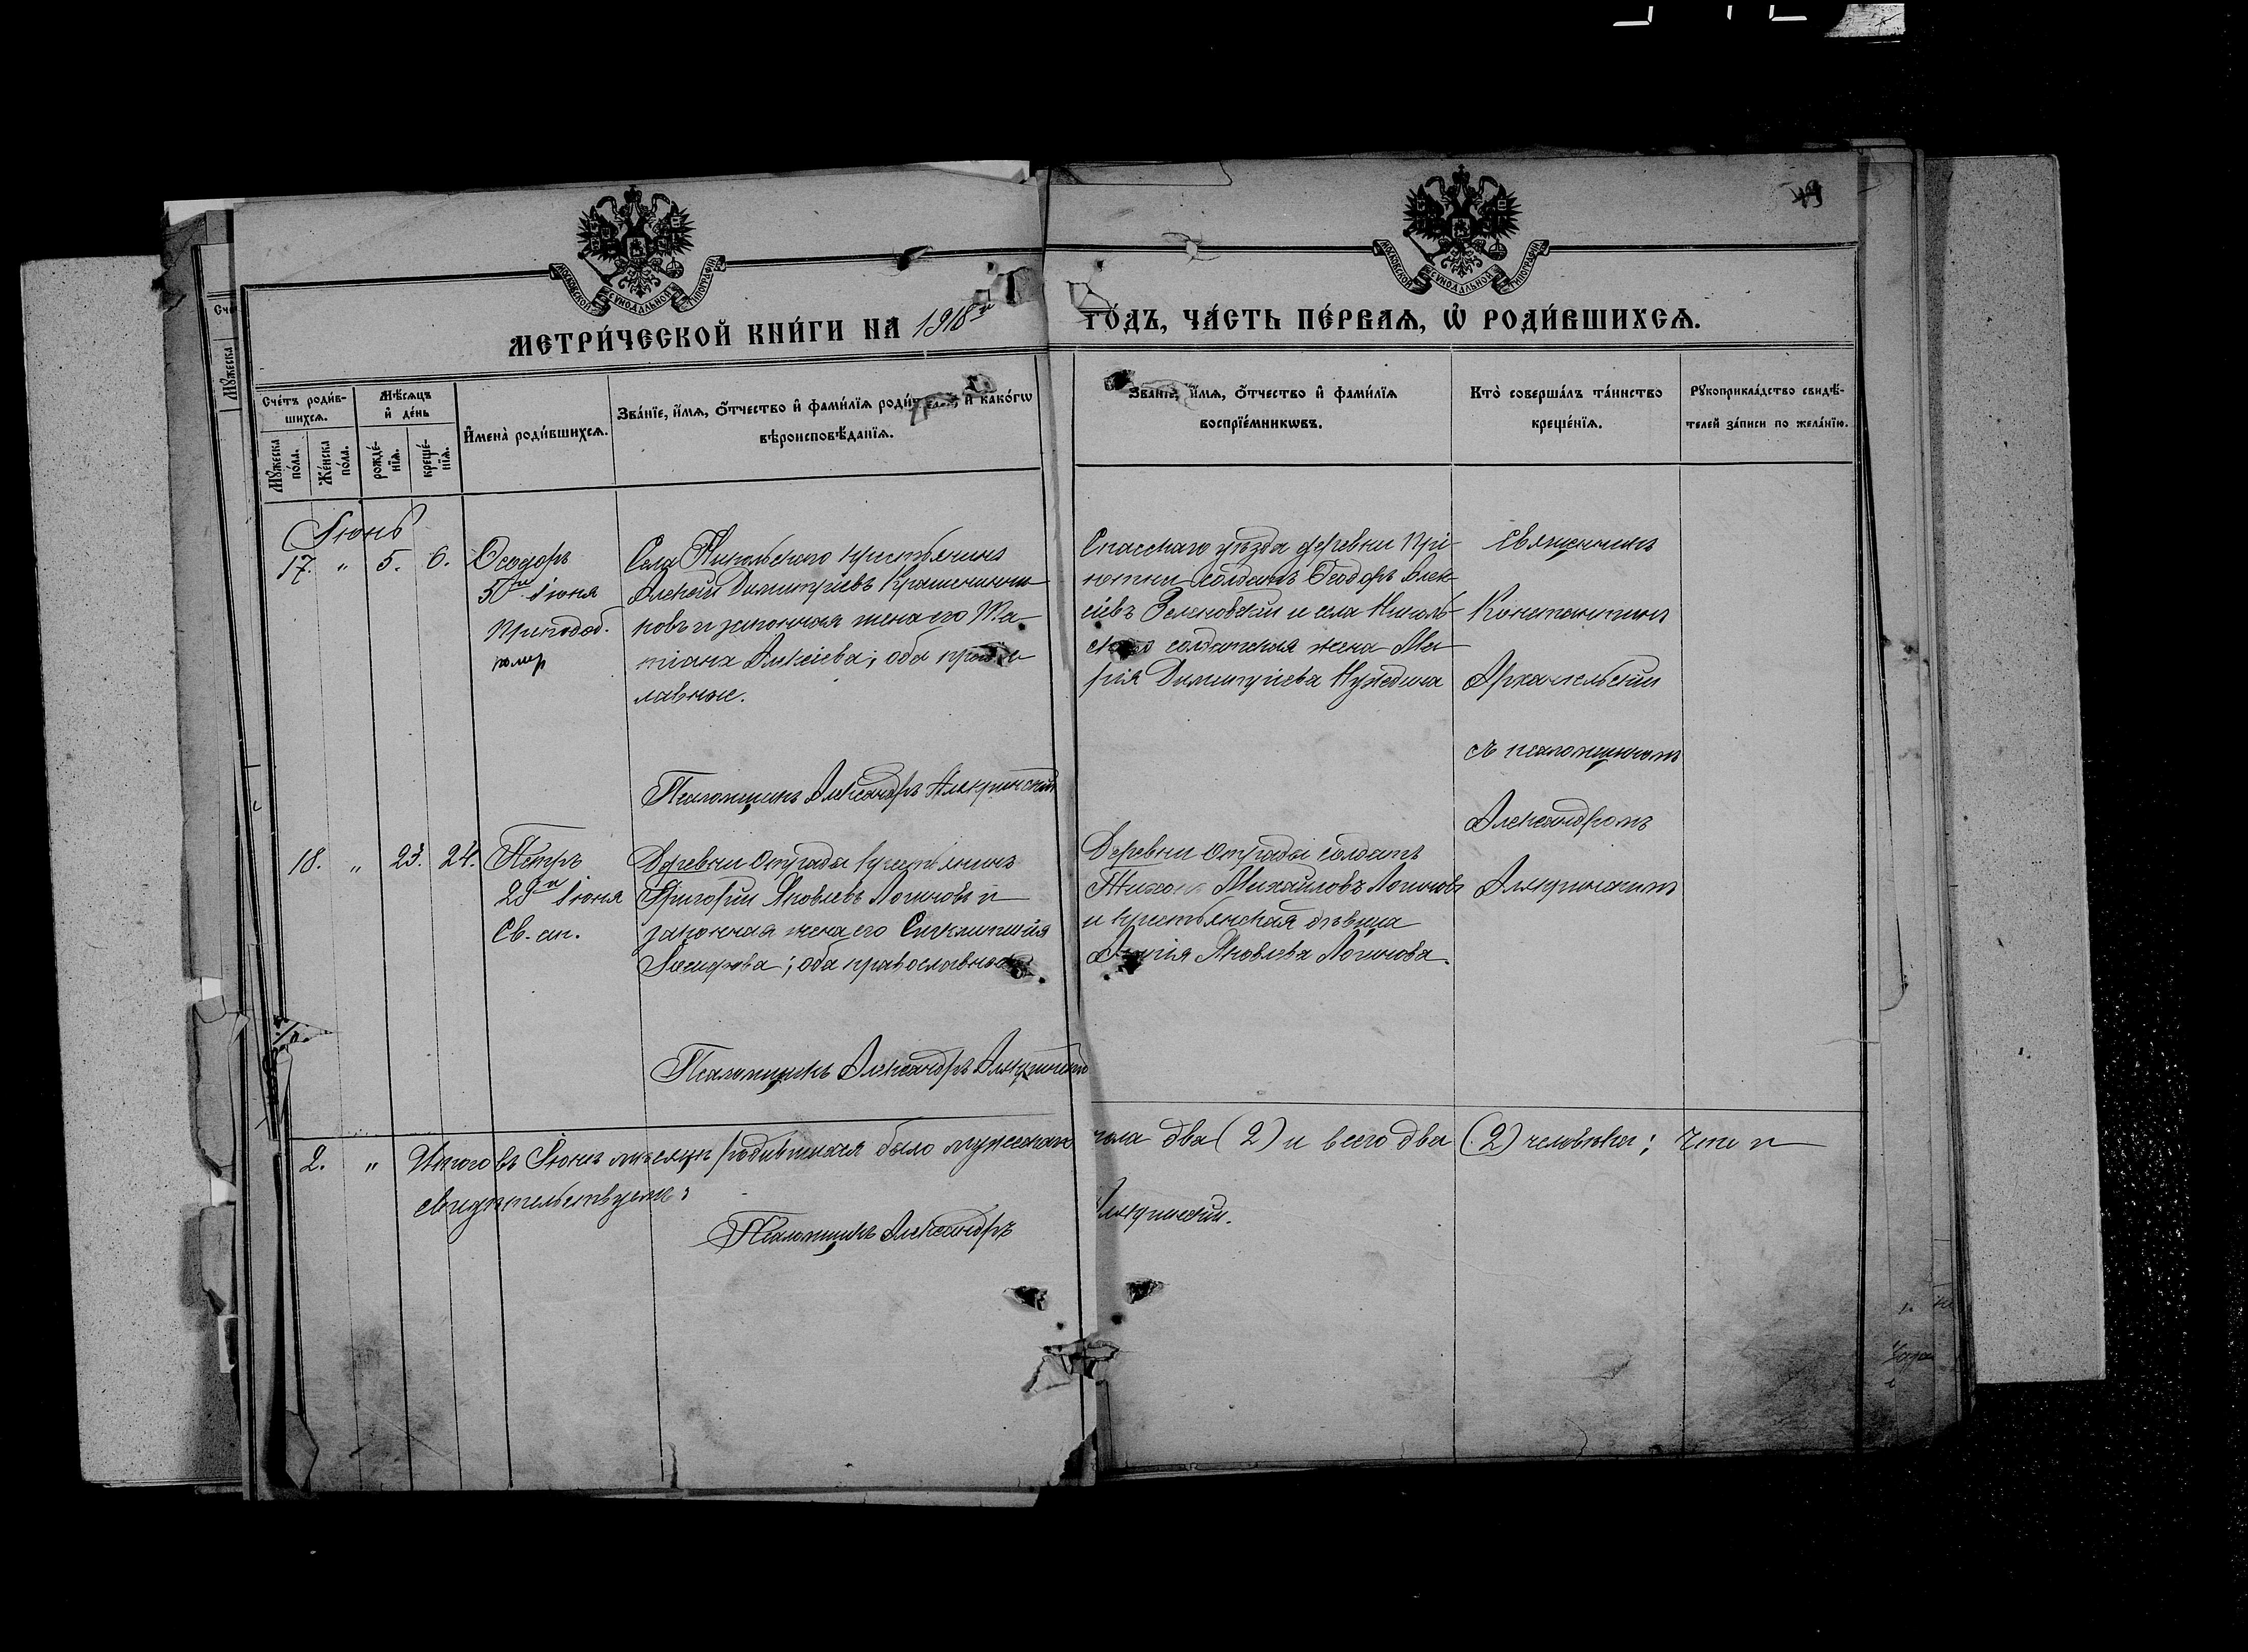 МОСКОВСКОЙ СѴНОДАЛЬНОЙ ТИПОГРАФІИ
МОСКОВСКОЙ СѴНОДАЛЬНОЙ ТИПОГРАФІИ
49
МЕТРИ́ЧЕСКОЙ КНИ́ГИ НА 1918й
ГО́ДЪ, ЧА́СТЬ ПЕ́РВАѦ, Ѡ РОДИ́ВШИХСѦ.
Сче́тъ роди́в-
шихсѧ.
Мѹжеска по́ла.
Же́нска по́ла.
Мѣ́сѧцъ
и де́нь
рожде́-
нїѧ.
креще́-
нїѧ.
Имена̀ роди́вшихсѧ.
Зва́нїе, и́мѧ, о́тчество и фами́лїѧ роди́телей, и како́гѡ
вѣроисповѣ́данїѧ.
Зва́нїе, и́мѧ, о́тчество и фами́лїѧ
воспрїе́мникѡвъ.
Кто̀ соверша́лъ та́инство
креще́нїѧ.
Рѹкоприкла́дство свидѣ́-
телей за́писи по жела́нїю.
Іюнь
17. " 5. 6.
Ѳеодоръ
5го Іюня
Преподоб.
Села Никольскаго крестьянинъ
Алексѣй Димитріевъ Крашенинни-
ковъ и законная жена его Та-
тіана Алексіева; оба правос-
лавные.
Псаломщикъ Александръ Алякринскій
Спасскаго уѣзда деревни Прі-
ютки солдатъ Ѳеодоръ Алек-
сіевъ Зеленовскій и села Николь-
скаго солдатская жена Ма-
рія Димитріева
Священникъ
Константинъ
Архангельскій
съ псаломщикомъ
Александромъ
Алякринскимъ
18. " 23. 24.
Петръ
29го Іюня
Св. ап.
Деревни Отрады крестьянинъ
Григорій Яковлевъ Логиновъ и
законная жена его
оба православные.
Псаломщикъ Александръ Алякринскій
Деревни Отрады солдатъ
Тихонъ Михайловъ Логиновъ
и крестьянская дѣвица
Яковлева Логинова.
2. " Итого въ Іюнѣ мѣсяцѣ родившихся было мужескаго пола два (2) и всего два (2) человѣка; что и
свидѣтельствуемъ:
Псаломщикъ Александръ Алякринскій.